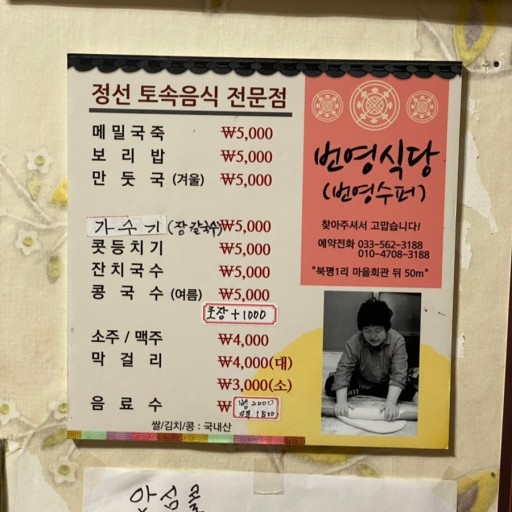 정선 토속음식 전문점
메밀국죽 ₩5,000
보리밥 ₩5,000
만둣국 (겨울) ₩5,000
가수기 (장칼국수) ₩5,000
콧등치기 ₩5,000
잔치국수 ₩5,000
콩국수 (여름) ₩5,000
포장 +1000
소주 / 맥주 ₩4,000
막걸리 ₩4,000(대)
₩3,000(소)
음료수 ₩
병 2000
1500
쌀/김치/콩 : 국내산
번영식당
(번영수퍼)
찾아주셔서 고맙습니다!
예약전화 033-562-3188
010-4708-3188
"북평1리 마을회관 뒤 50m"
안심콜